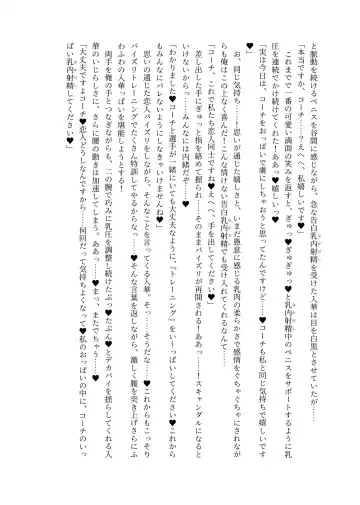 と脈動を続けるペニスを谷間に感じながら、急な告白乳内射精を受けた人華は目を白黒とさせていたが……
「本当ですか、コーチ…？えへへ、私嬉しいです♥」
これまでで一番の可愛い満面の笑みを返すと、ぎゅっ♥ぎゅぎゅっ♥と乳内射精中のペニスをサポートするように乳
圧を連続でかけ続けてくれた！ああっ♥嬉しいっ♥
「実は今日は、コーチをおっぱいで虜にしちゃおうと思ってたんです……♥コーチも私と同じ気持ちで嬉しいです
お、同じ気持ち……！思いが通じた嬉しさと、いまだ愚息に感じる乳肉の柔らかさで感情をぐちゃぐちゃにされなが
らも俺はこの上なく喜んだ！こんな情けない告白乳内射精でも受け入れてくれるなんて……
「コーチ、これで私たち恋人同士ですね♥えへへ、手を出してください♥」
差し出した手にぎゅっと指を絡めて握られ……そのままパイズリが再開される！ああっ…！スキャンダルになると
いけないからっ……みんなには内緒だぞ……♥
「わかりました♥コーチと選手が一緒にいても大丈夫なように、『トレーニング』をい～っぱいしてください♥これから
もみんなにバレないようにしなきゃいけませんね♥」
思いの通じた恋人パイズリをしながら、そんなことを言ってくる人華。そうっ…そうだな…♥これからもこっそり
パイズリトレーニングでたくさん特訓してやるからなっ…♥そんな言葉を返しながら、激しく腰を突き上げさらにふ
わふわの人華っぱいを堪能しようとする！
両手を俺の手とつなぎながらも、二の腕で巧みに乳圧を調整し続けたぷっ♥たぷん♥とデカパイを揺らしてくれる人
華のいじらしさに、さらに腰の動きは加速してしまう。ああっ……♥まっ、またでちゃう……♥
「大丈夫ですよコーチ♥恋人どうしなんですから……何回だって気持ちよくなって♥私のおっぱいの中に、コーチのいっ
ぱい乳内射精してください♥」